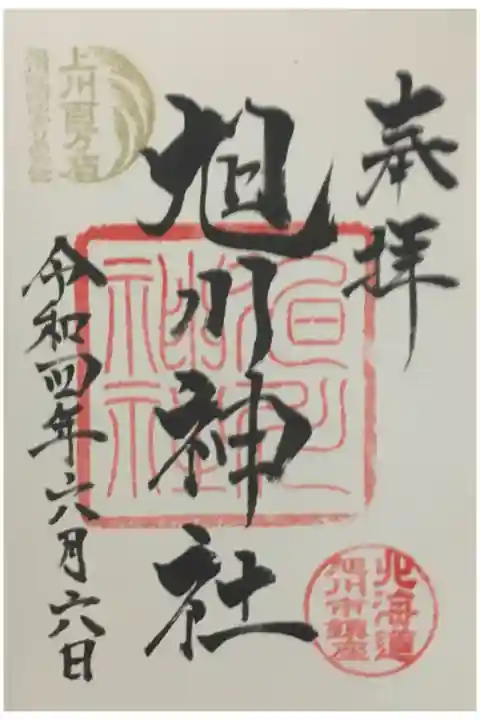 奉拝
旭川神社
令和四年六月六日
上川百万石
旭川神社
北海道
旭川市鎮座